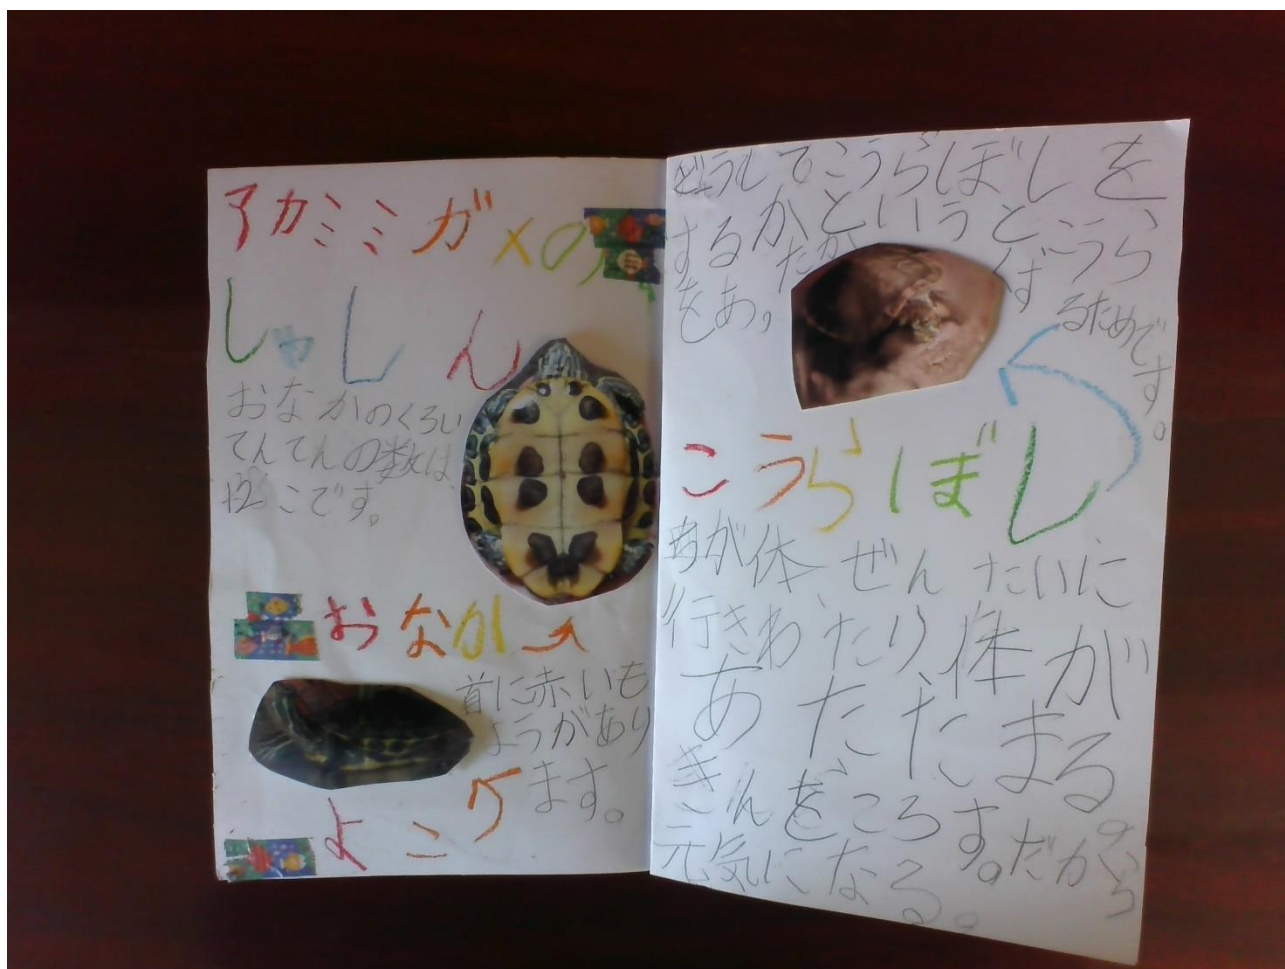 アカミミガメの
しゃしん
おなかのくろい
てんてんの数は、
12こです。
おなか
首に赤いも
ようがあり
ます。
よこ
どうしてこうらぼしを
するかというと、こうら
をあたかめるためです。
こうらぼし
ちが体、ぜんたいに
行きわたり体が
あたたまる。
きんをころす。だから
元気になる。